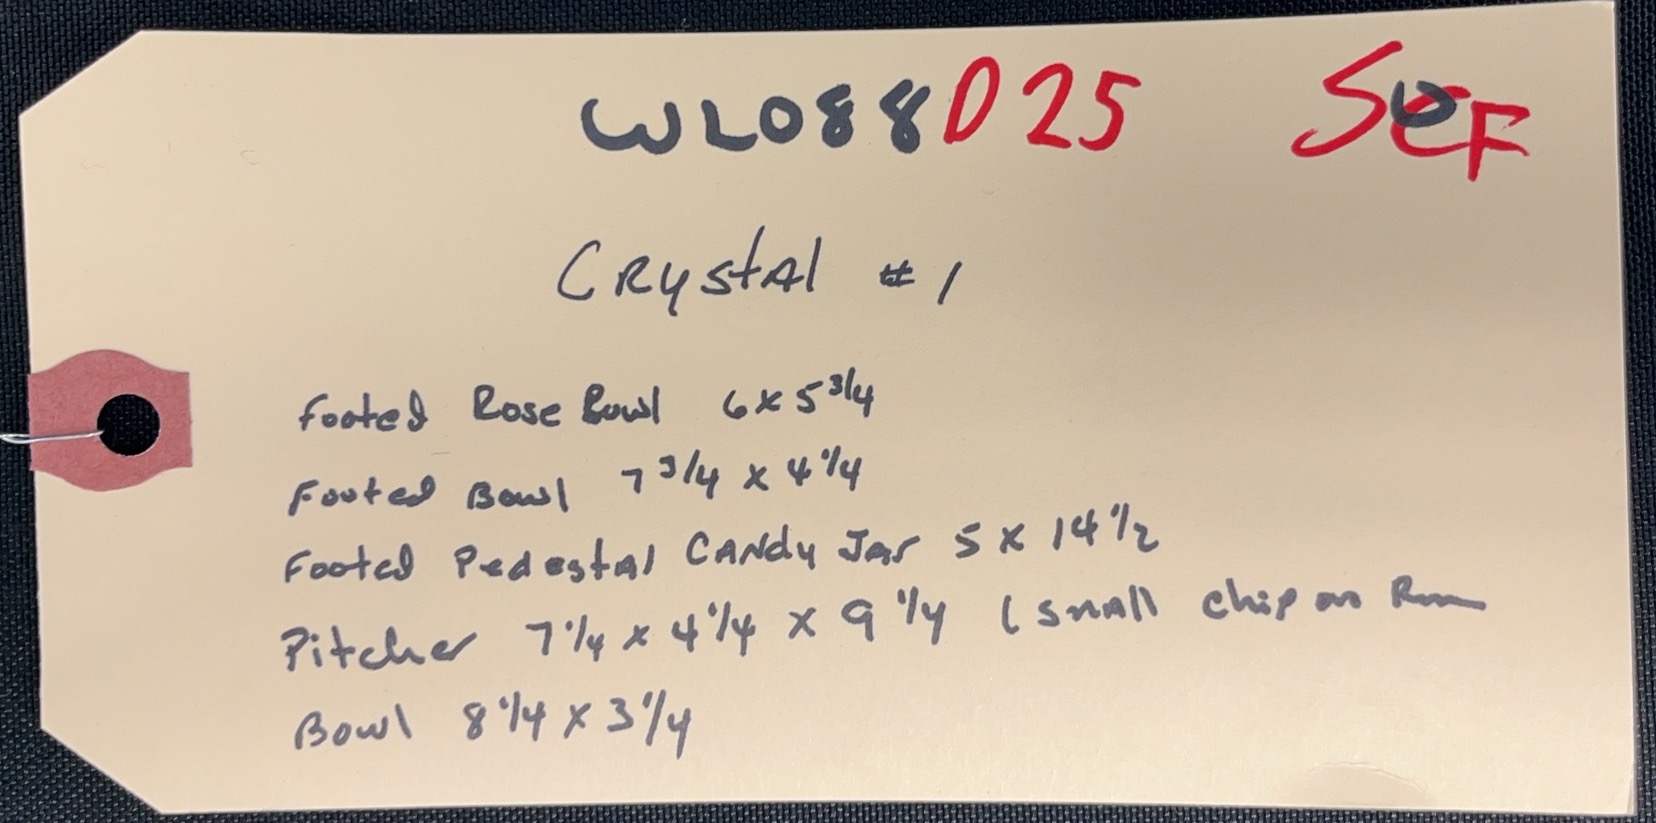 WL088D25 SEF
Crystal #1
Footed Rose Bowl 6 x 5 3/4
Footed Bowl 7 3/4 x 4 1/4
Footed Pedestal Candy Jar 5 x 14 1/2
Pitcher 7 1/4 x 4 1/4 x 9 1/4 (small chip on Rim
Bowl 8 1/4 x 3 1/4